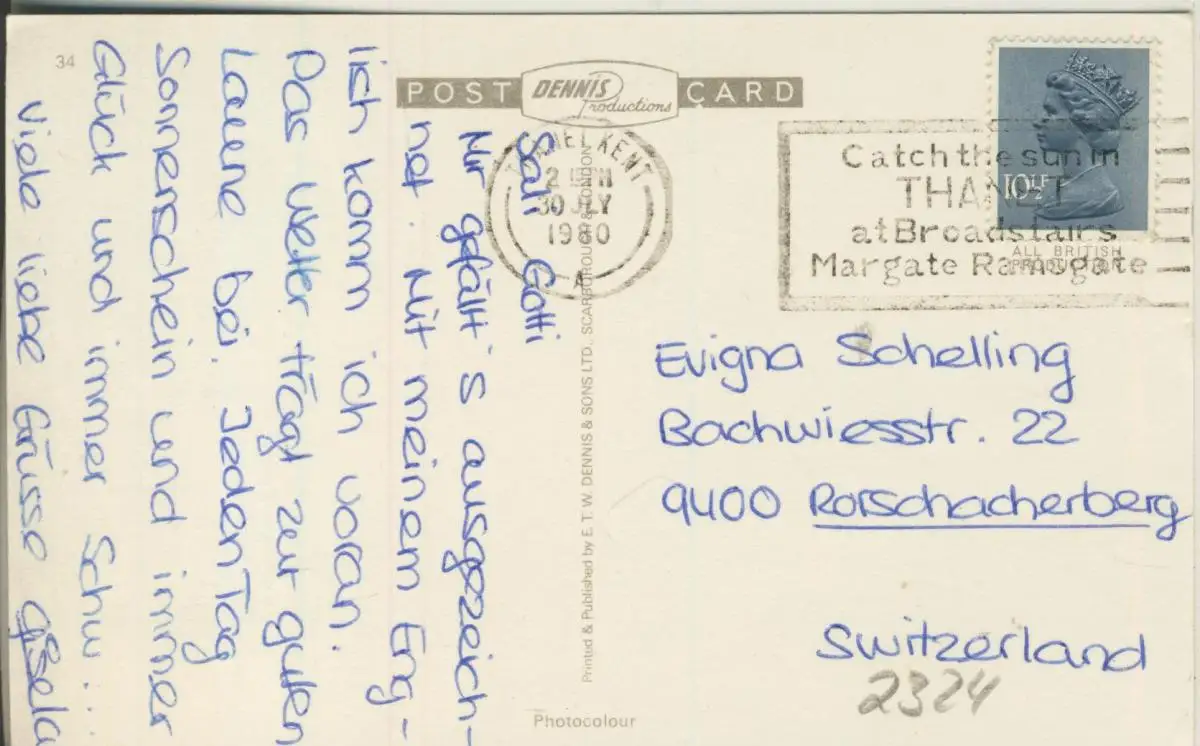 34
POST DENNIS Productions CARD
KENT
30 JLY
1980
A
Catch the sun in
THANET
at Broadstairs
Margate Ramsgate
10½P
ALL BRITISH
Sali Gotti
Mir gefällt's ausgezeich-
net. Mit meinem Eng-
lish komm ich voran.
Das Wetter trägt zur guten
Laune bei. Jeden Tag
Sonnenschein und immer
Glück und immer Schw...
Viele liebe Grüsse Gisela
Printed & Published by E. T. W. DENNIS & SONS LTD., SCARBOROUGH & LONDON
Evigna Schelling
Bachwiesstr. 22
9400 Rorschacherberg
Switzerland
2324
Photocolour